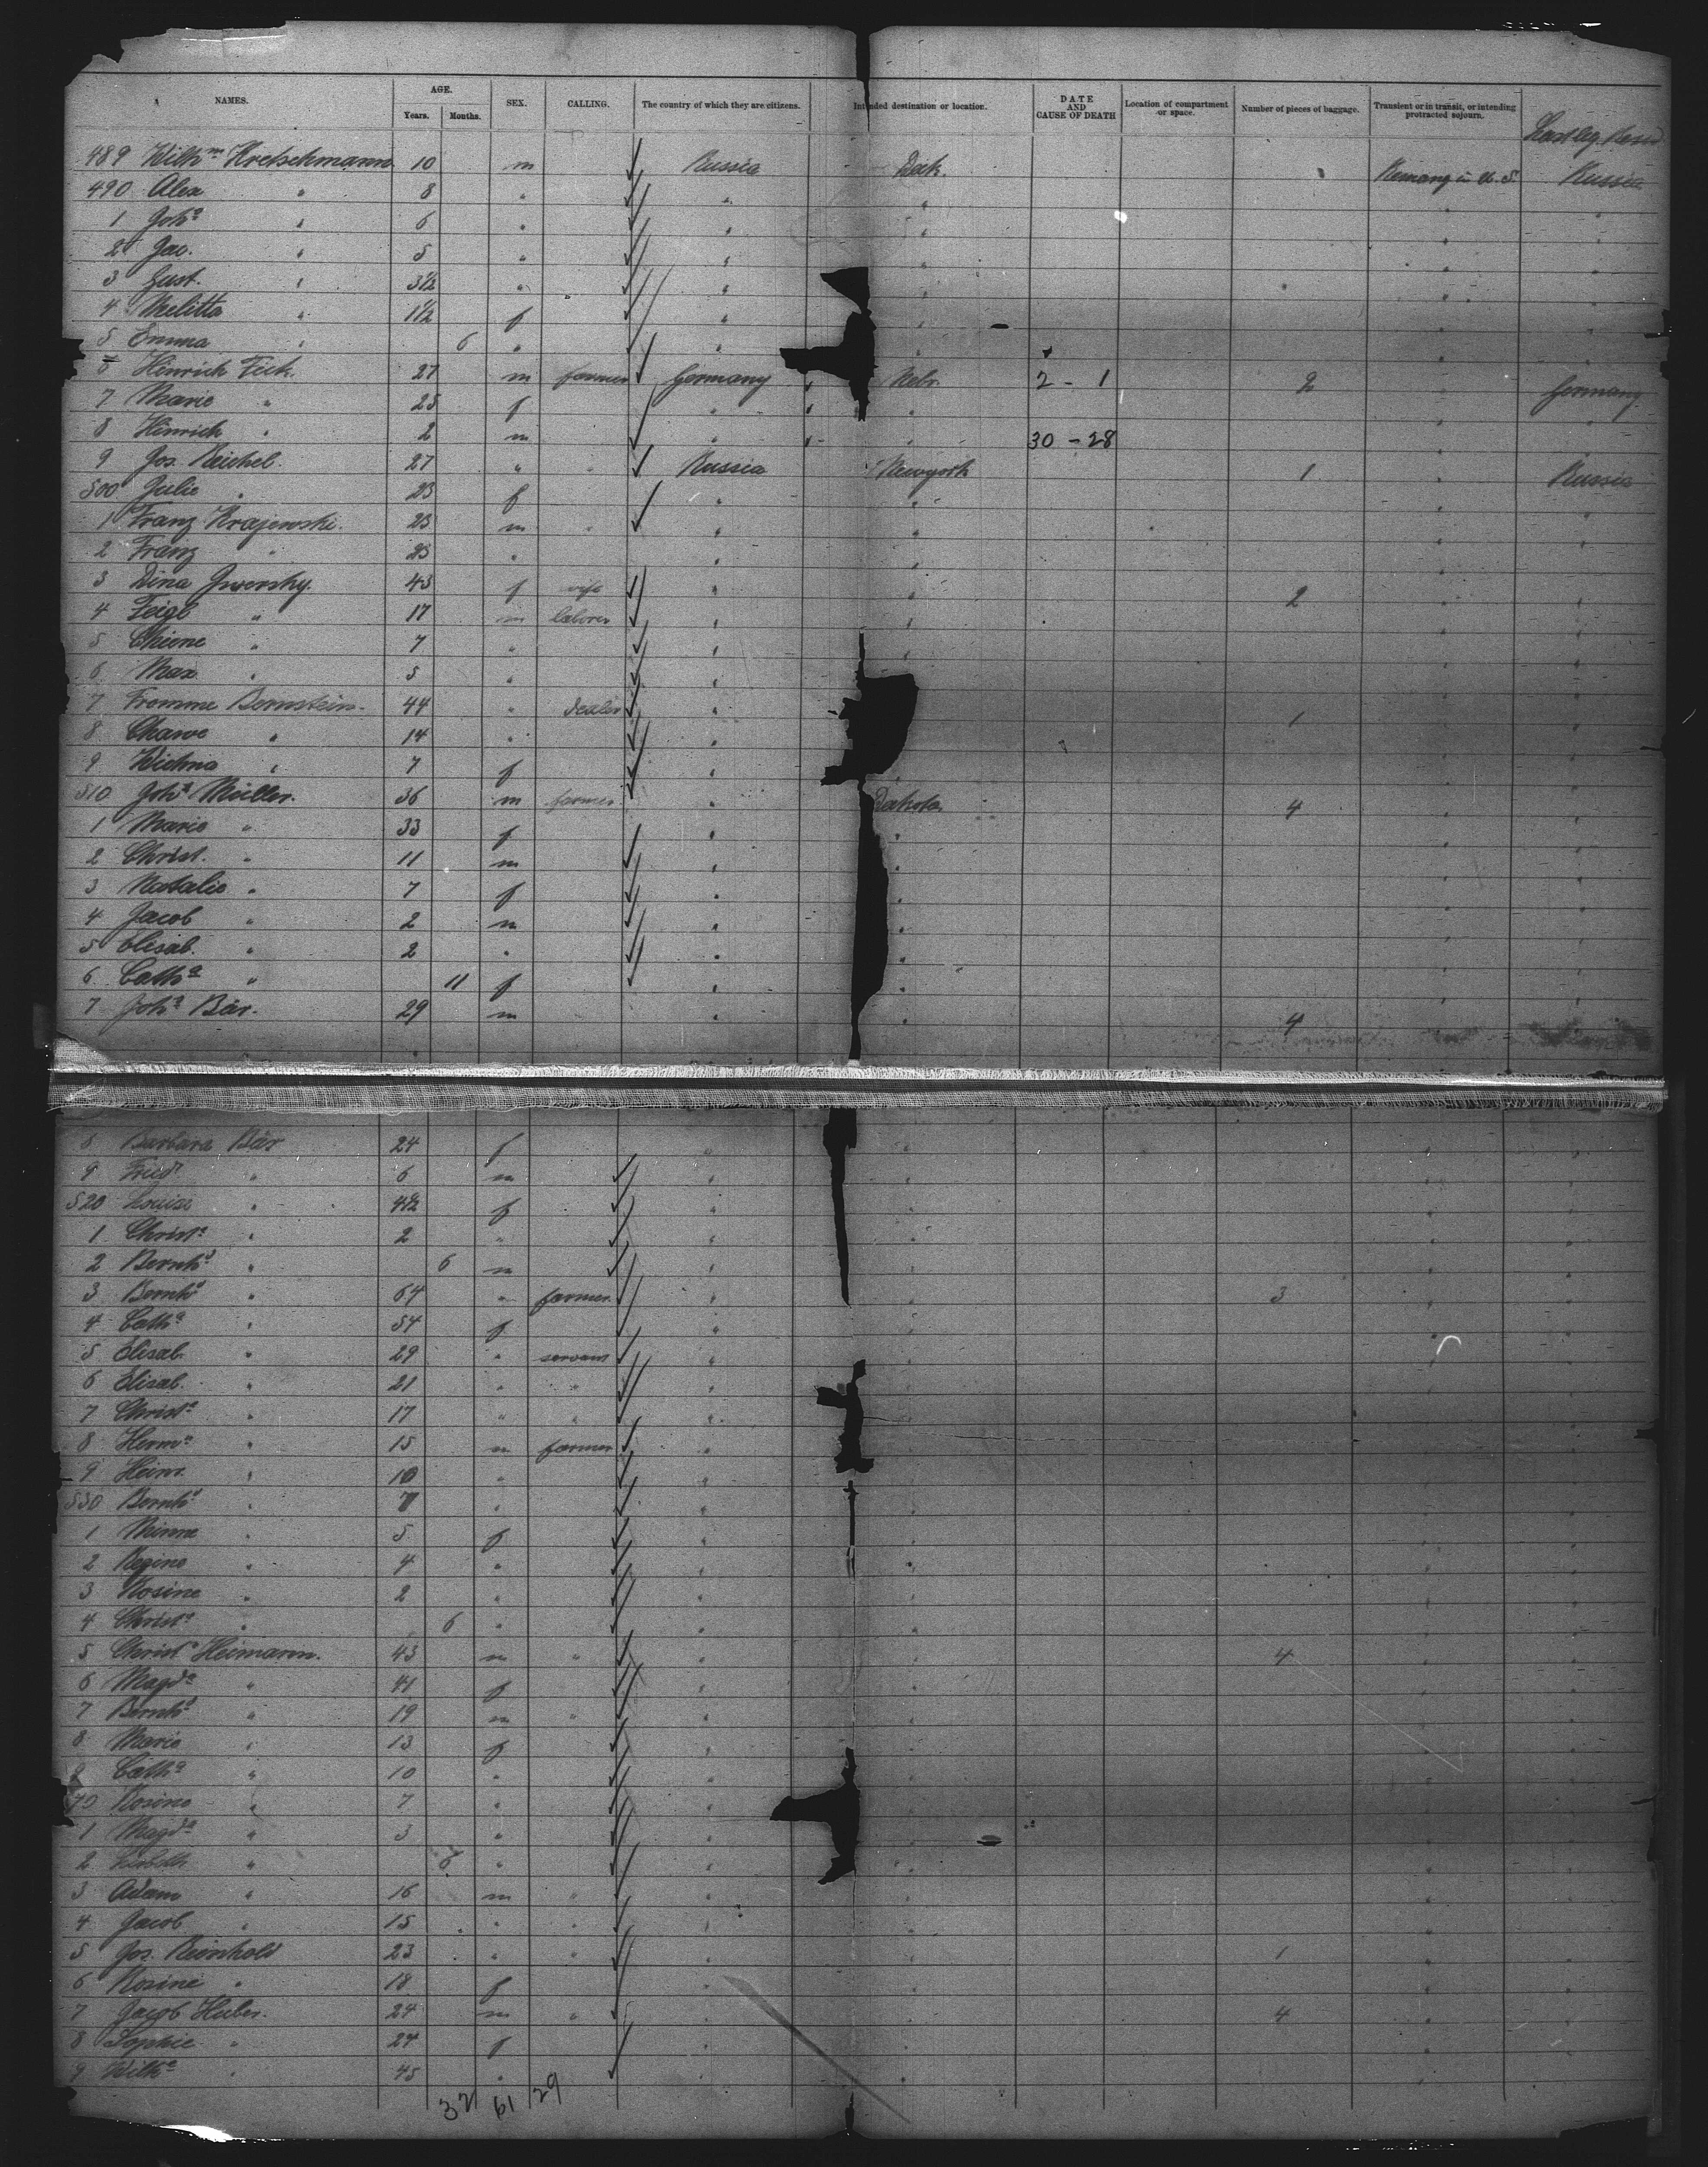 NAMES. AGE. SEX. CALLING. The country of which they are citizens. Intended destination or location. DATE AND CAUSE OF DEATH Location of compartment or space. Number of pieces of baggage. Transient or in transit, or intending protracted sojourn.
Years. Months.
489 Wilhm Kretschmann 10 m Russia Dak. Remang in U.S. Russia
490 Alex " 8 " " " " "
1 Joha " 6 " " " " "
2 Jac. " 5 " " " " "
3 Gust. " 3½ " " " " "
4 Melitta " 1½ f " " " "
5 Emma " 6 " " " " "
6 Hinrich Fick 27 m farmer Germany Nebr. 2 - 1 2 " Germany
7 Marie " 25 f " " " "
8 Hinrich " 2 m " " 30 - 28 " "
9 Jos. Reichel. 27 " " Russia Newyork 1 " Russia
500 Julie " 23 f " " " "
1 Franz Krajewski. 23 m " " " " "
2 Franz " 25 " " " " "
3 Dina 43 f wife " " 2 " "
4 Feigl " 17 m laborer " " " "
5 Chiene " 7 " " " " "
6 Max " 5 " " " " "
7 Fromme Bernstein. 44 " dealer " 1 " "
8 Chawe " 14 " " " "
9 " 7 f " " " "
510 Joha Müller. 36 m farmer " Dakota 4 " "
1 Marie " 33 f " " " "
2 Christ. " 11 m " " " "
3 Natalie " 7 f " " " "
4 Jacob " 2 m " " " "
5 Elisab. " 2 " " " " "
6 Catha " 11 f " " " "
7 Joha Bär. 29 m " " 4
8 Barbara Bär 24 f " " " "
9 Friedr " 6 m " " " "
520 Louise " 4½ f " " " "
1 Christa " 2 " " " " "
2 Bernhd " 6 m " " " "
3 Bernhd " 64 " farmer " " 3 " "
4 Catha " 54 f " " " "
5 Elisab. " 29 " servant " " " "
6 Elisab. " 21 " " " " " "
7 Christa " 17 " " " " " "
8 Herm " 15 m farmer " " " "
9 Heinr. " 10 " " " " "
530 Bernhd " 7 " " " " "
1 Minna " 5 f " " " "
2 Regine " 4 " " " " "
3 Rosine " 2 " " " " "
4 Christa " 6 " " " " "
5 Christ Heimann. 43 m " " " 4 " "
6 Magda " 41 f " " " "
7 Bernhd " 19 m " " " " "
8 Marie " 13 f " " " "
9 Catha " 10 " " " " "
40 Rosine " 7 " " " " "
1 Magda " 3 " " " " "
2 " " " " " "
3 Adam " 16 m " " " " "
4 Jacob " 15 " " " " " "
5 Jos. Reinhold 23 " " " " 1 " "
6 Rosine " 18 f " " " "
7 Jacob Huber. 24 m " " " 4 " "
8 Sophie " 24 f " " " "
9 Wilha " 45 " " " " "
32 61 29